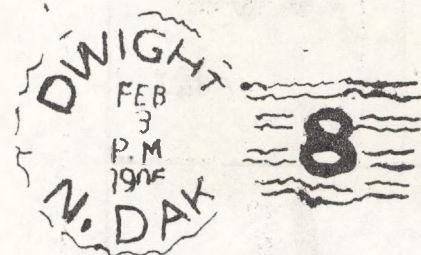 DWIGHT
FEB
3
P.M
N. DAK
8